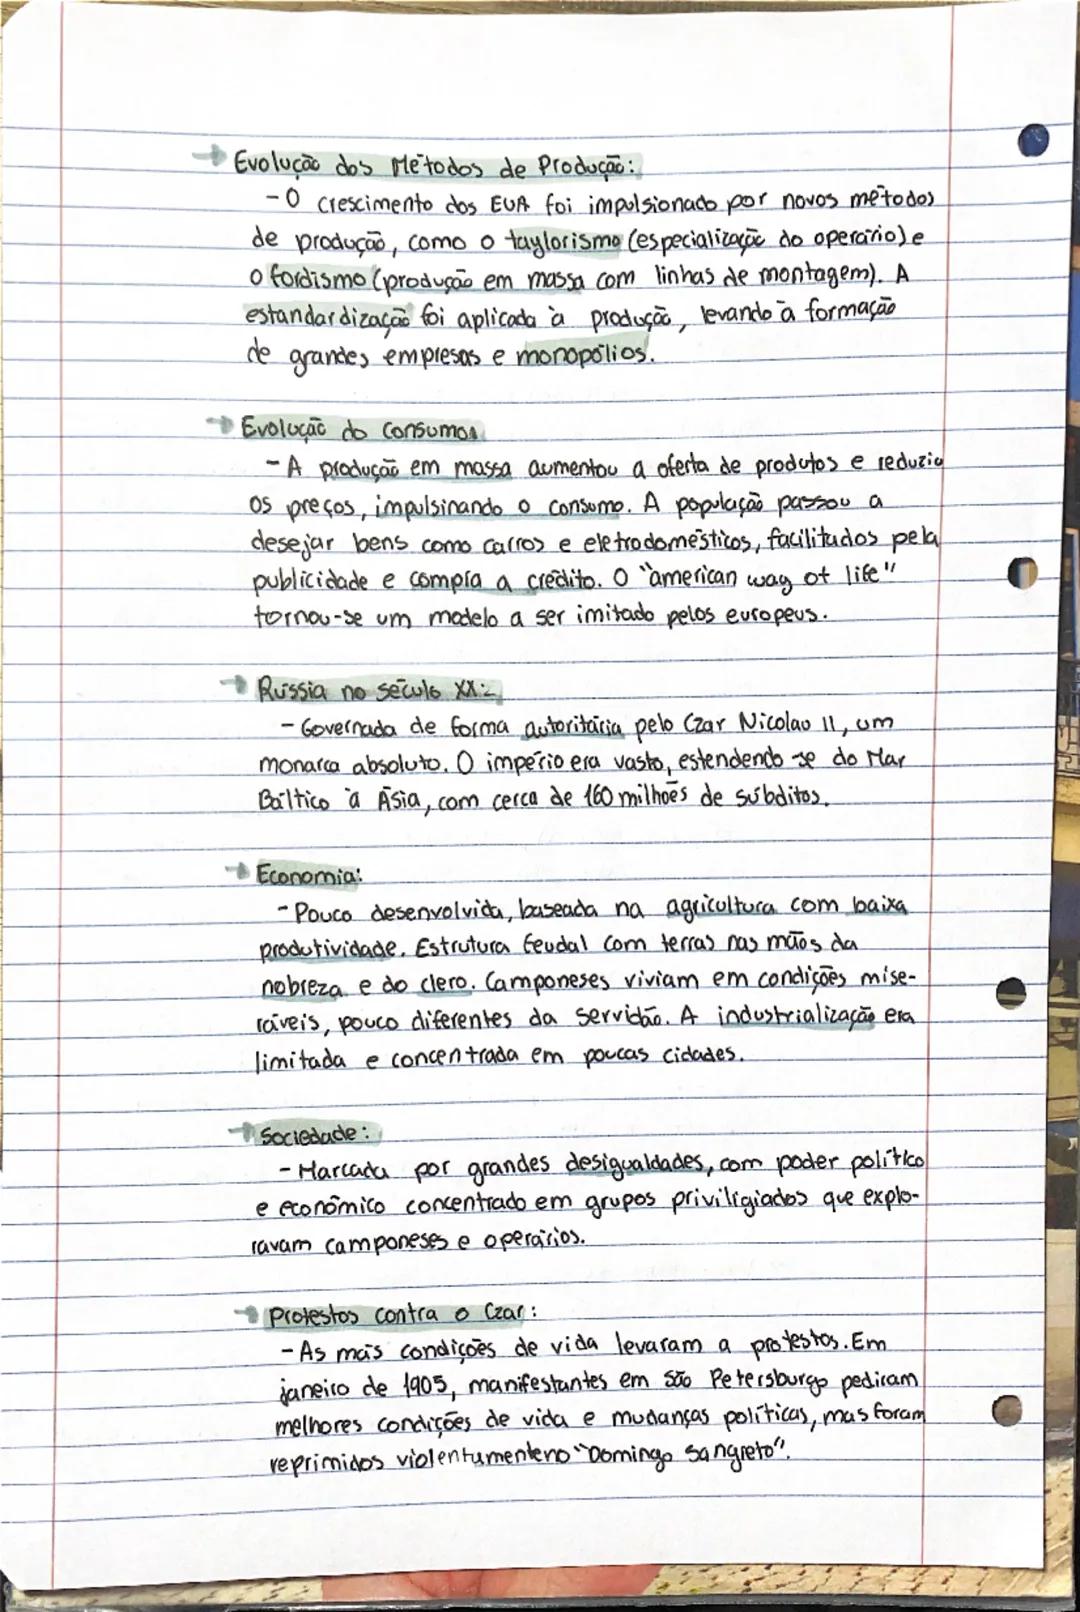 → Evolução dos Métodos de Produção:
- O crescimento dos EUA foi impulsionado por novos métodos
de produção, como o taylorismo (especialização do operário) e
o fordismo (produção em massa com linhas de montagem). A
estandardização foi aplicada à produção, levando à formação
de grandes empresas e monopólios.
→ Evolução do Consumo:
- A produção em massa aumentou a oferta de produtos e reduziu
os preços, impulsinando o consumo. A população passou a
desejar bens como carros e eletrodomésticos, facilitados pela
publicidade e compra a crédito. O "american way of life"
tornou-se um modelo a ser imitado pelos europeus.
→ Rússia no século XX:
- Governada de forma autoritária pelo Czar Nicolau II, um
monarca absoluto. O império era vasto, estendendo-se do Mar
Báltico à Ásia, com cerca de 160 milhões de súbditos.
→ Economia:
- Pouco desenvolvida, baseada na agricultura com baixa
produtividade. Estrutura feudal com terras nas mãos da
nobreza e do clero. Camponeses viviam em condições mise-
ráveis, pouco diferentes da servidão. A industrialização era
limitada e concentrada em poucas cidades.
→ Sociedade:
- Marcada por grandes desigualdades, com poder político
e económico concentrado em grupos priviligiados que explo-
ravam camponeses e operários.
→ Protestos contra o Czar:
- As más condições de vida levaram a protestos. Em
janeiro de 1905, manifestantes em São Petersburgo pediram
melhores condições de vida e mudanças políticas, mas foram
reprimidos violentamente no "Domingo Sangreto".